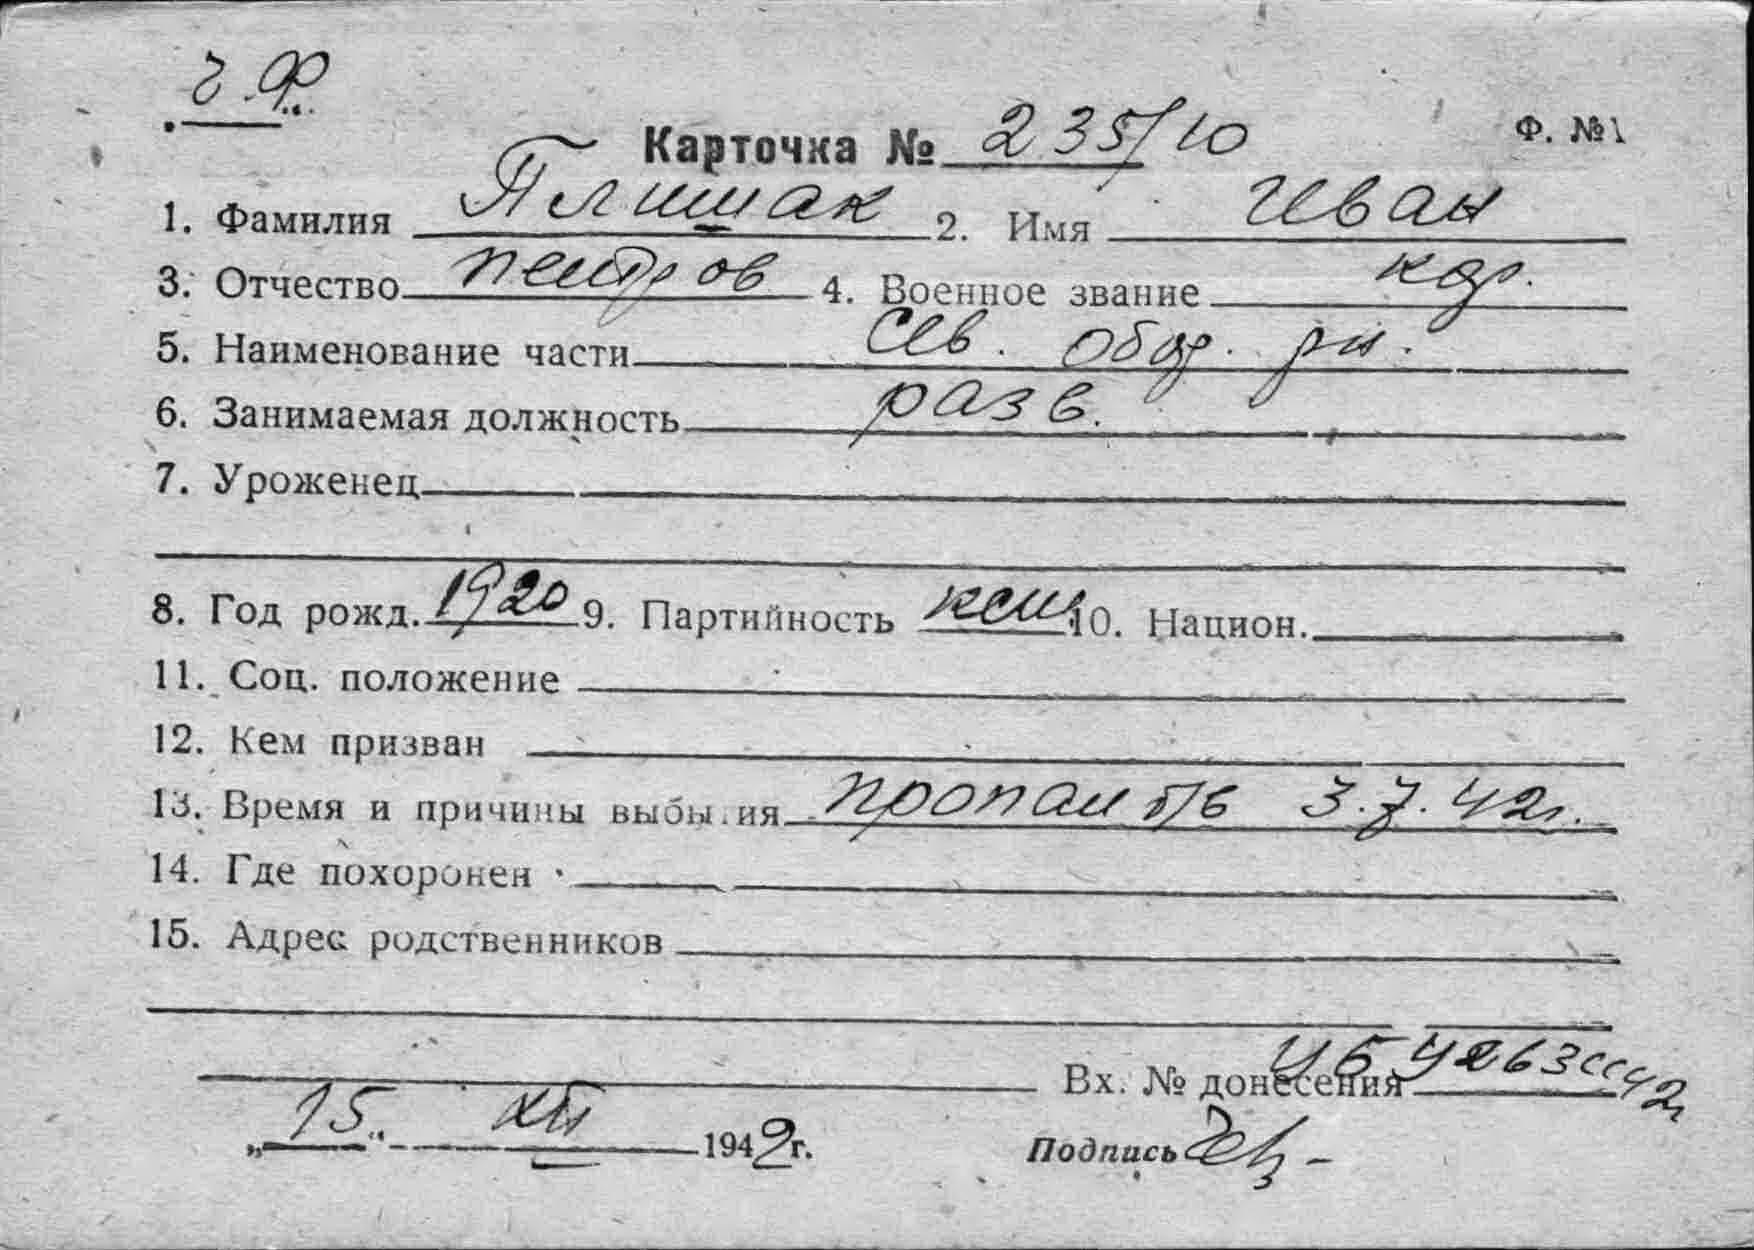 ч.Ф.
Карточка № 235/10 Ф. №1
1. Фамилия Плишак 2. Имя Иван
3. Отчество Петров 4. Военное звание кр.
5. Наименование части Сев. обор. рн.
6. Занимаемая должность разв.
7. Уроженец
8. Год рожд. 1920 9. Партийность 10. Национ.
11. Соц. положение
12. Кем призван
13. Время и причины выбытия пропал б/в 3.7.42г.
14. Где похоронен
15. Адрес родственников
Вх. № донесения
„15“ XII 1942г. Подпись